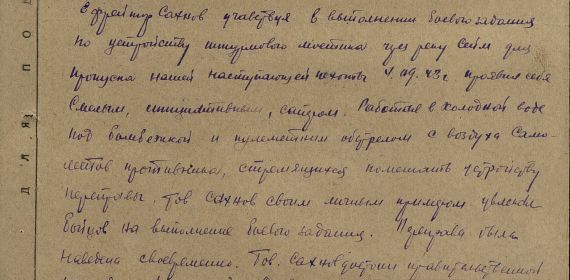 Ефрейтор Сахнов учавствуя в выполнении боевого задания
по устройству штурмового мостика через реку Сейм для
пропуска нашей наступающей пехоты 4.09.43г проявил себя
смелым, инициативным, сапером. Работая в холодной воде
под бомбежкой и пулеметным обстрелом с воздуха само-
летов противника, стремящихся помешать устройству
переправы. Тов Сахнов своим личным примером увлекал
бойцов на выполнение боевого задания. Переправа была
наведена своевременно. Тов. Сахнов достоин правительственной
Д Л Я П О Д